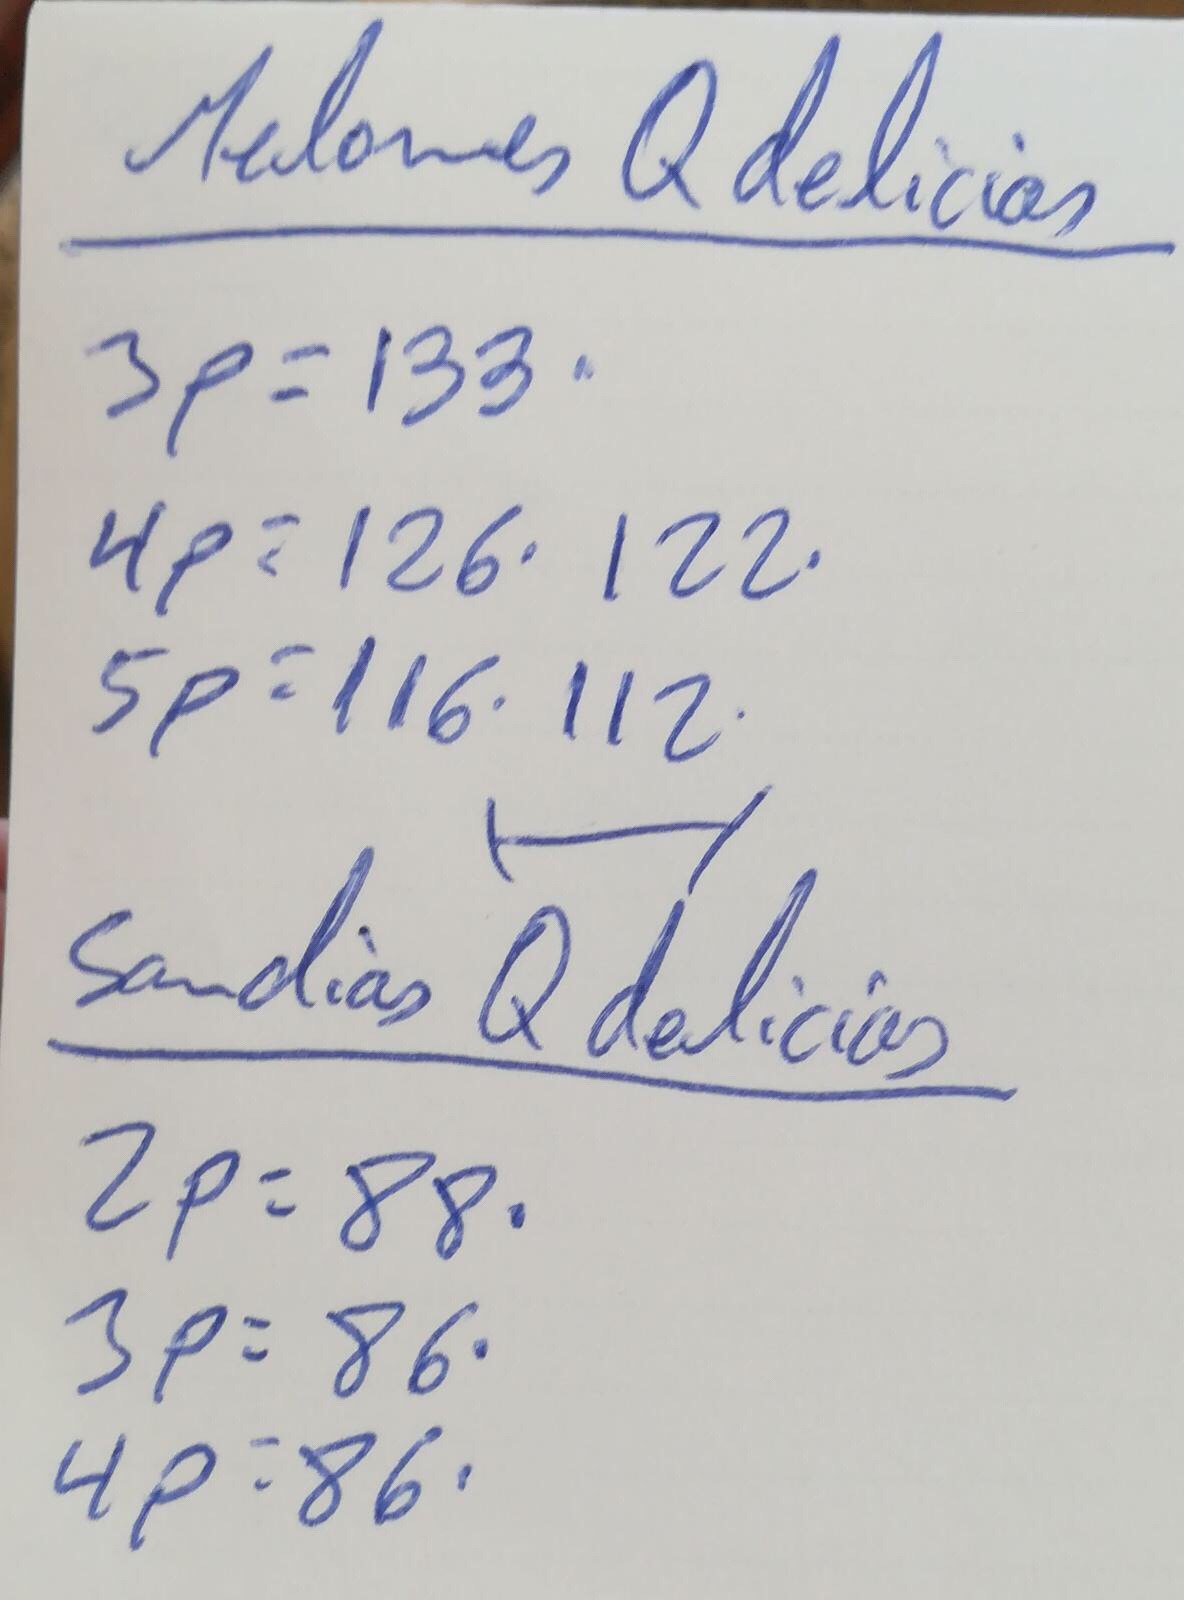 Melones Q delicias
3p=133.
4p=126. 122.
5p=116. 112.
Sandias Q delicias
2p=88.
3p=86.
4p=86.